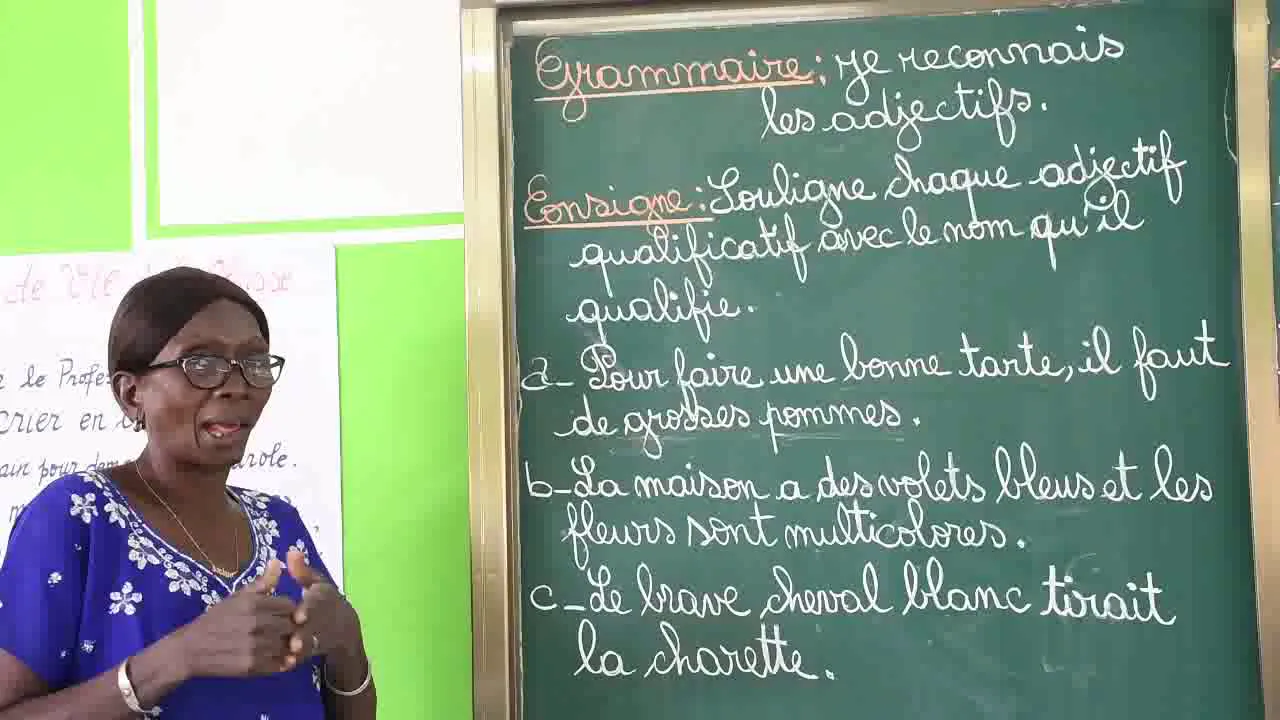 Grammaire: Je reconnais
les adjectifs.
Consigne: Souligne chaque adjectif
qualificatif avec le nom qu'il
qualifie.
a- Pour faire une bonne tarte, il faut
de grosses pommes.
b- La maison a des volets bleus et les
fleurs sont multicolores.
c- Le brave cheval blanc tirait
la charette.
de vie
le Profes
crier en
pour dem role.